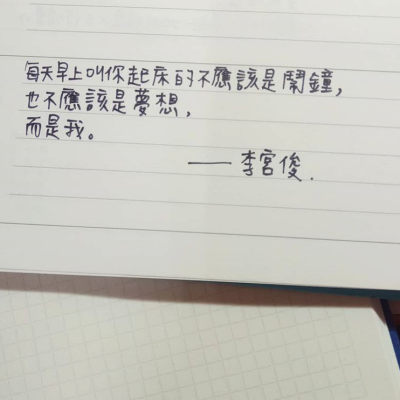 每天早上叫你起床的不應該是鬧鐘，
也不應該是夢想，
而是我。
——李宮俊.